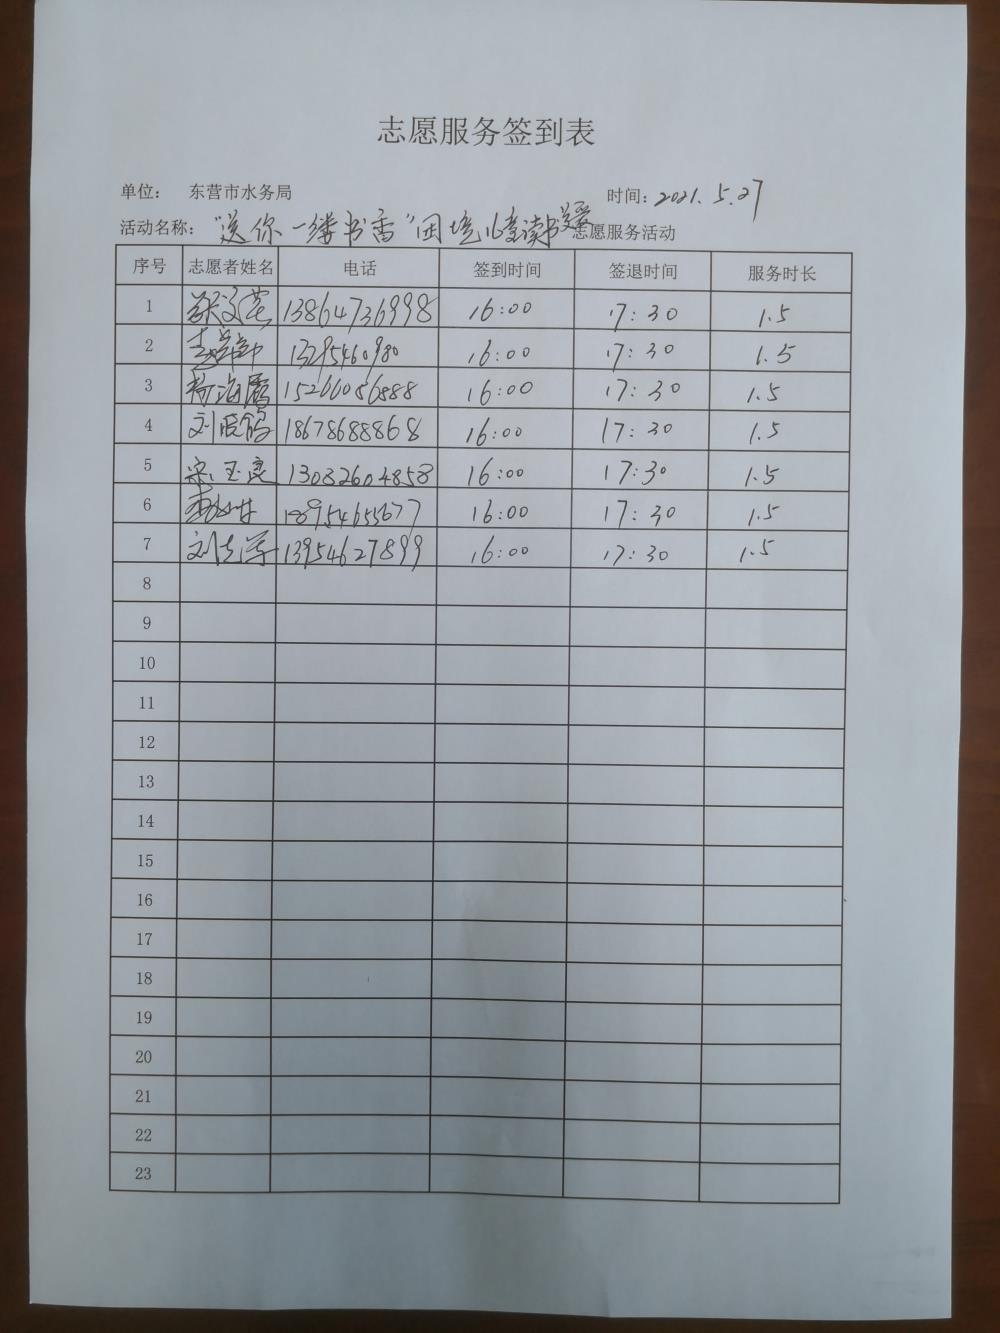 志愿服务签到表
单位： 东营市水务局 时间：2021.5.27
活动名称："送你一缕书香"困境儿童读书关爱志愿服务活动
序号 志愿者姓名 电话 签到时间 签退时间 服务时长
1 13864736998 16:00 17:30 1.5
2 13295460980 16:00 17:30 1.5
3 15266056888 16:00 17:30 1.5
4 18678688868 16:00 17:30 1.5
5 宋玉良 13082604858 16:00 17:30 1.5
6 18954655677 16:00 17:30 1.5
7 刘志军 13954627899 16:00 17:30 1.5
8
9
10
11
12
13
14
15
16
17
18
19
20
21
22
23